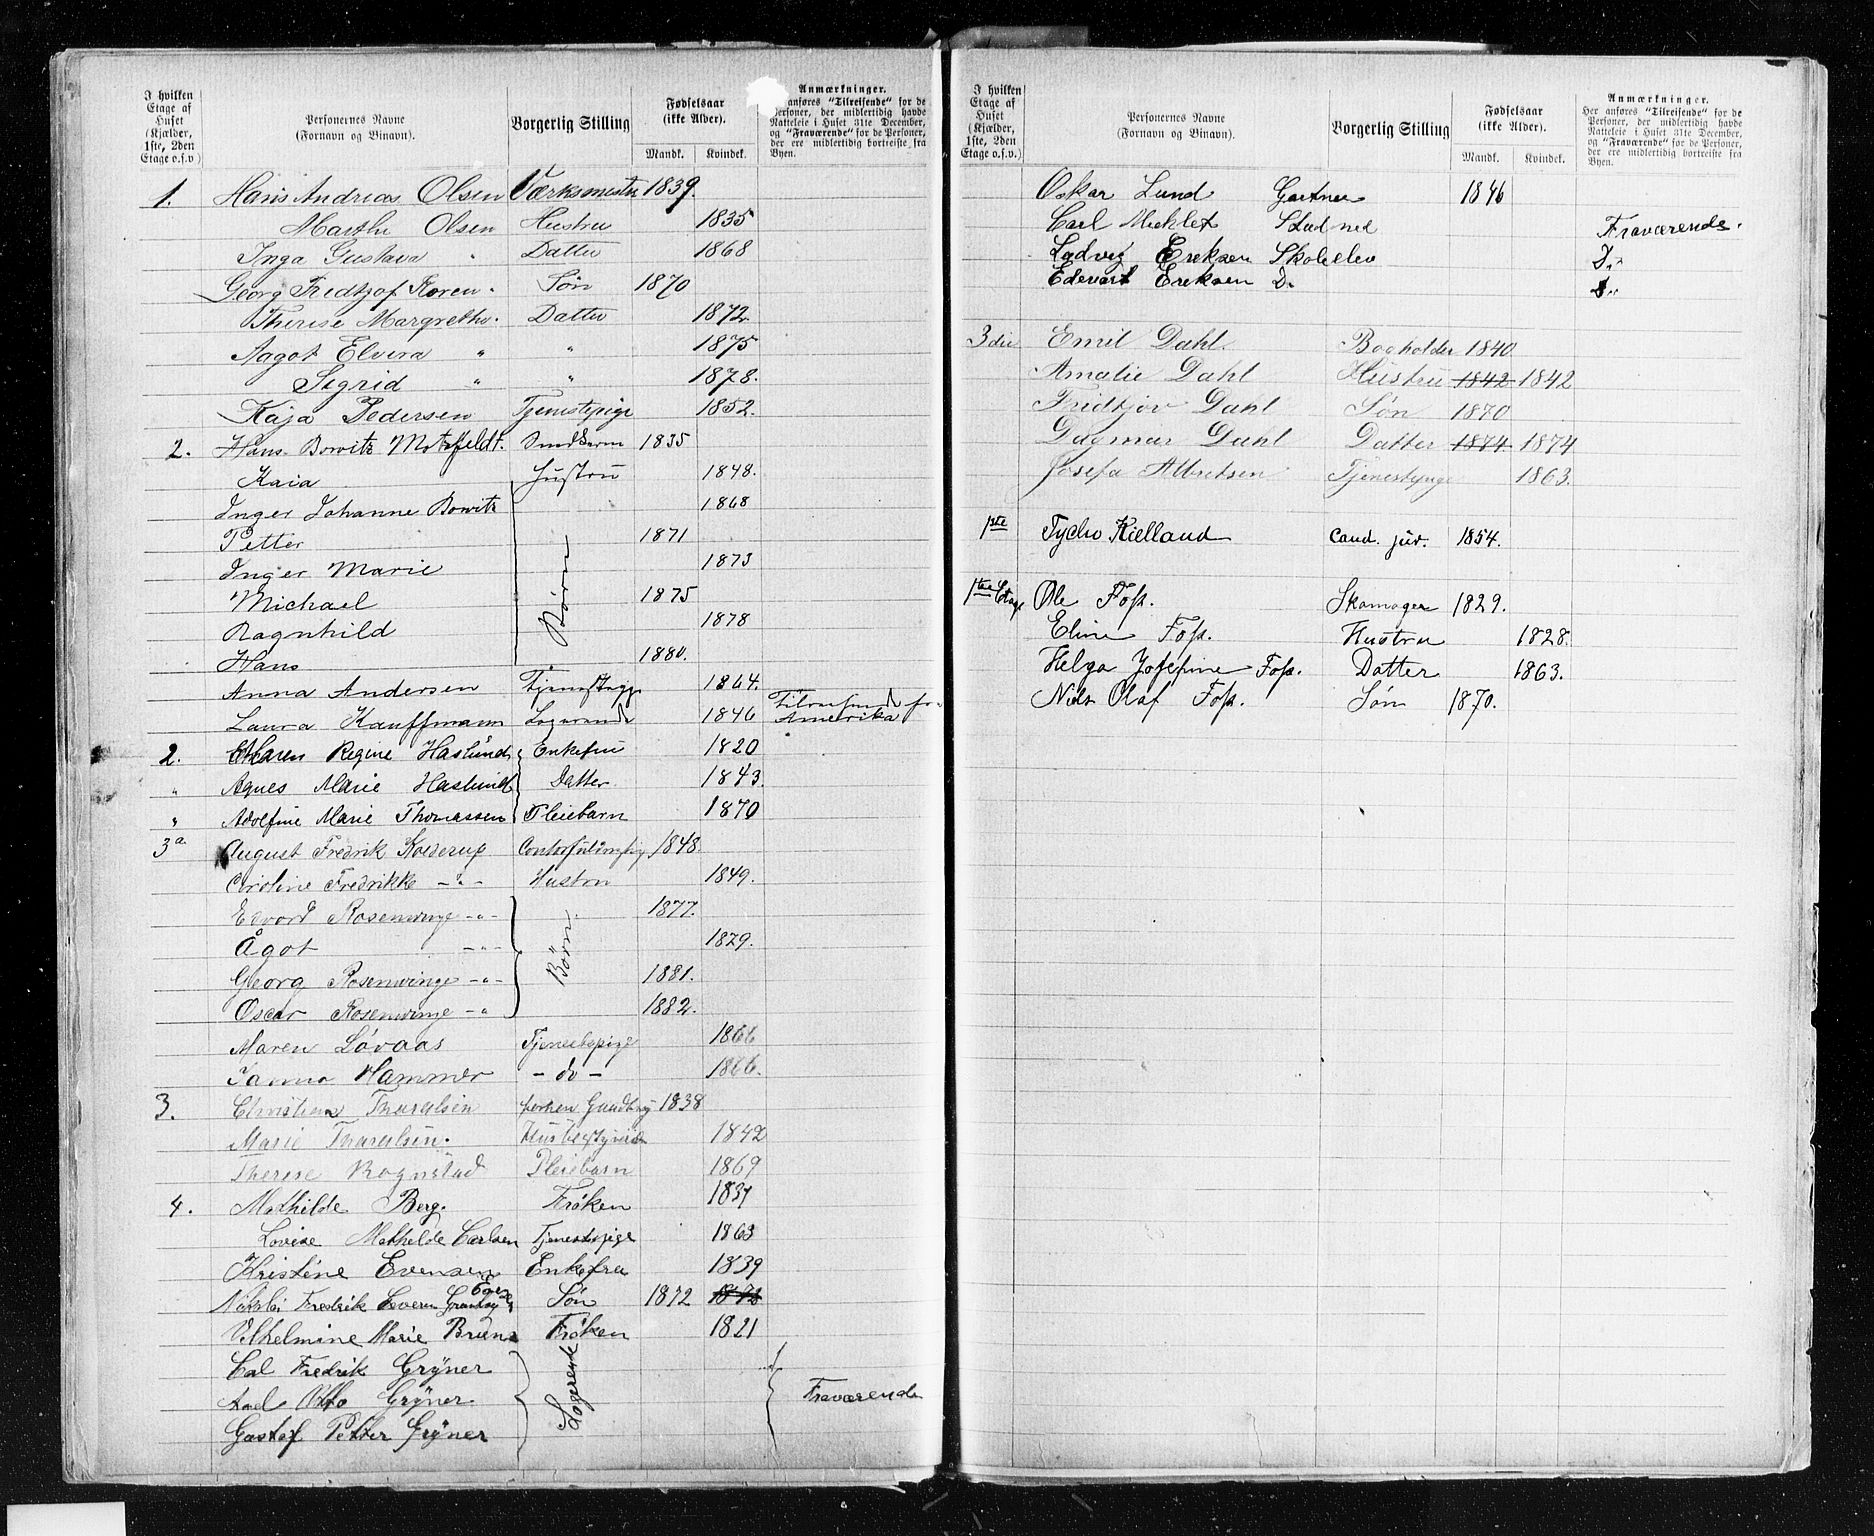 I hvilken Etage af Huset (Kjælder, 1ste, 2den Etage o.s.v)
Personernes Navne (Fornavn og Binavn).
Borgerlig Stilling
Fødselsaar (ikke Alder).
Mandk. Kvindek.
Anmærkninger.
anføres "Tilreisende" for de Personer, der midlertidig havde Natteleie i Huset 31te December, og "Fraværende" for de Personer, der ere midlertidig bortreiste fra Byen.
1. Hans Andreas Olsen Værksmester 1839.
Marthe Olsen Hustru 1835
Inga Gustava " Datter 1868
Georg Fredtjof Koren " Søn 1870
Therese Margrethe " Datter 1872.
Aagot Elvira " " 1875
Sigrid " " 1878.
Kaja Pedersen Tjenestepige 1852.
2. Hans Bowitz Motzfeldt 1835
Kaia Hustru 1848.
Inger Johanne Bowitz 1868
Petter 1871
Inger Marie 1873
Michael Børn 1875
Ragnhild 1878
Hans 1880.
Anna Andersen 1864.
Laura Kauffmann Logerende 1846 Amerika
2. Karen Regine Haslund Enkefru 1820
" Agnes Marie Haslund Datter 1843.
" Adolfine Marie Thomassen Pleiebarn 1870
3a August Fredrik Kolderup 1848.
Caroline Fredrikke -"- Hustru 1849.
Edvard Rosenvinge -"- 1877.
Ågot -"- Børn 1879.
Georg Rosenvinge -"- 1881.
Oscar Rosenvinge -" 1882.
Maren Løvaas Tjenestepige 1866
Hammer - do - 1866.
3. Christian 1838
Marie Husbestyrerinde 1842
Therese Rognstad Pleiebarn 1869
4. Mathilde Berg. Frøken 1837
Lovise Mathilde Carlsen Tjenestepige 1863
Kristine Evensen Enkefru 1839
Fredrik Søn 1872
Vilhelmine Marie Frøken 1821
Cal Fredrik Grÿner
Axel Otto Grÿner Logerende Fraværende
Gustaf Petter Grÿner
I hvilken Etage af Huset (Kjælder, 1ste, 2den Etage o.s.v.)
Personernes Navne (Fornavn og Binavn).
Borgerlig Stilling
Fødselsaar (ikke Alder).
Mandk. Kvindek.
Anmærkninger.
Her anføres "Tilreisende" for de Personer, der midlertidig havde Natteleie i Huset 31te December, og "Fraværende" for de Personer, der ere midlertidig bortreiste fra Byen.
Oskar Lund Gartner 1846
Carl Michlet Stud med Fraværende.
Ludvig Eriksen Skoleelev D."
Edevart Eriksen D. D."
3die Emil Dahl. Bogholder 1840
Amalie Dahl Hustru 1842 1842
Fridtjov Dahl Søn 1870
Dagmar Dahl Datter 1874 1874
Josefa Albretsen Tjenestepige 1863.
1ste Tycho Kielland cand. jur. 1854.
1ste Etage Ole Foss. Skomager 1829.
Eline Foss. Hustru 1828.
Helga Josefine Foss. Datter 1863.
Nils Olaf Foss. Søn 1870.